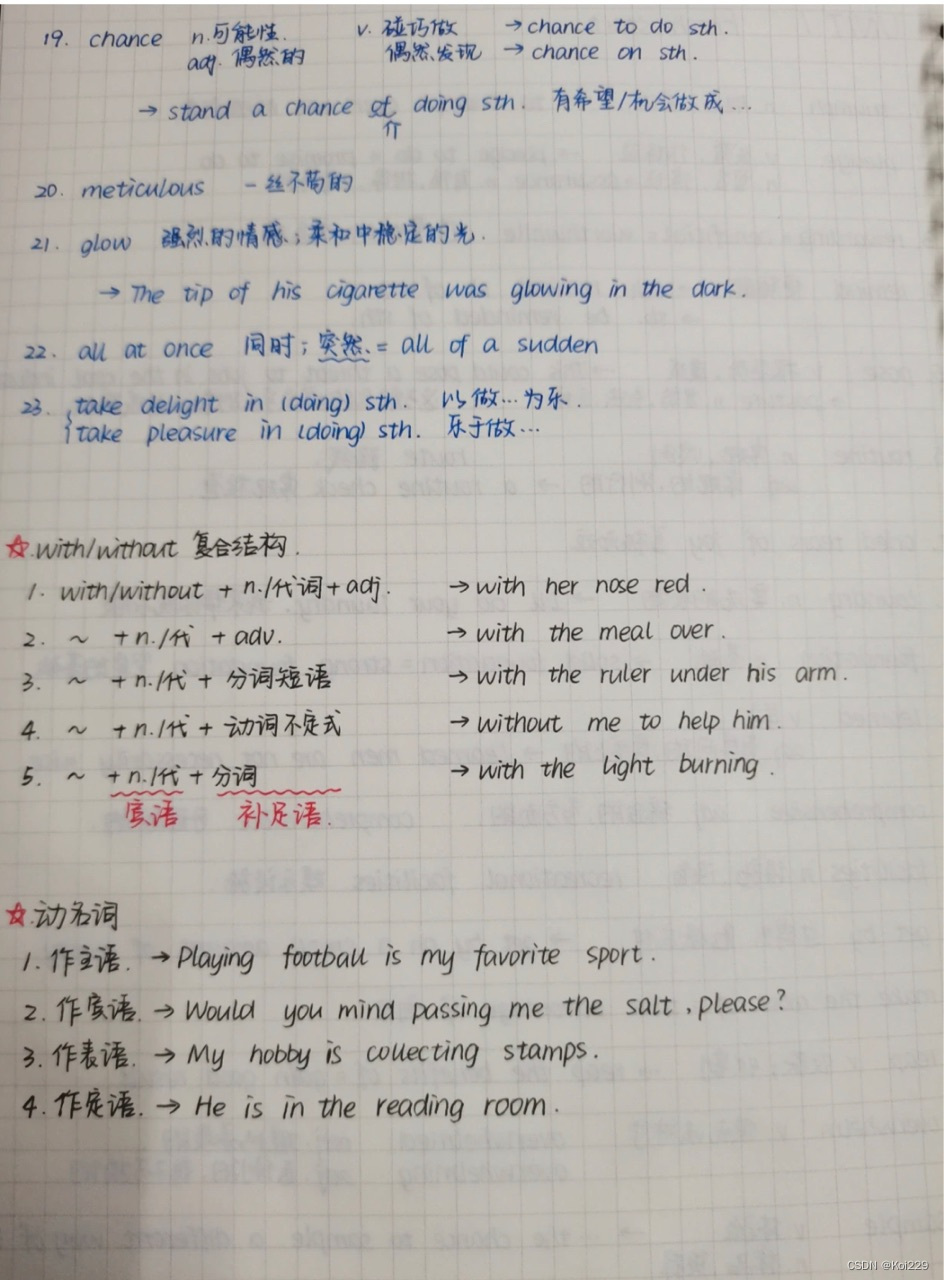 19. chance n.可能性. v. 碰巧做 →chance to do sth.
adj. 偶然的 偶然发现 → chance on sth.
→ stand a chance of doing sth. 有希望/机会做成…
介
20. meticulous 一丝不苟的
21. glow 强烈的情感;柔和中稳定的光.
→ The tip of his cigarette was glowing in the dark.
22. all at once 同时;突然 = all of a sudden
23. take delight in (doing) sth. 以做…为乐.
take pleasure in (doing) sth. 乐于做…
☆.with/without 复合结构.
1. with/without + n./代词+adj. → with her nose red.
2. ~ +n./代 + adv. → with the meal over.
3. ~ +n./代 + 分词短语 → with the ruler under his arm.
4. ~ +n./代 + 动词不定式 → without me to help him.
5. ~ +n./代 + 分词 → with the light burning.
宾语 补足语.
☆.动名词
1. 作主语. → Playing football is my favorite sport.
2. 作宾语. → Would you mind passing me the salt, please?
3. 作表语. → My hobby is collecting stamps.
4. 作定语. → He is in the reading room.
CSDN @Koi229